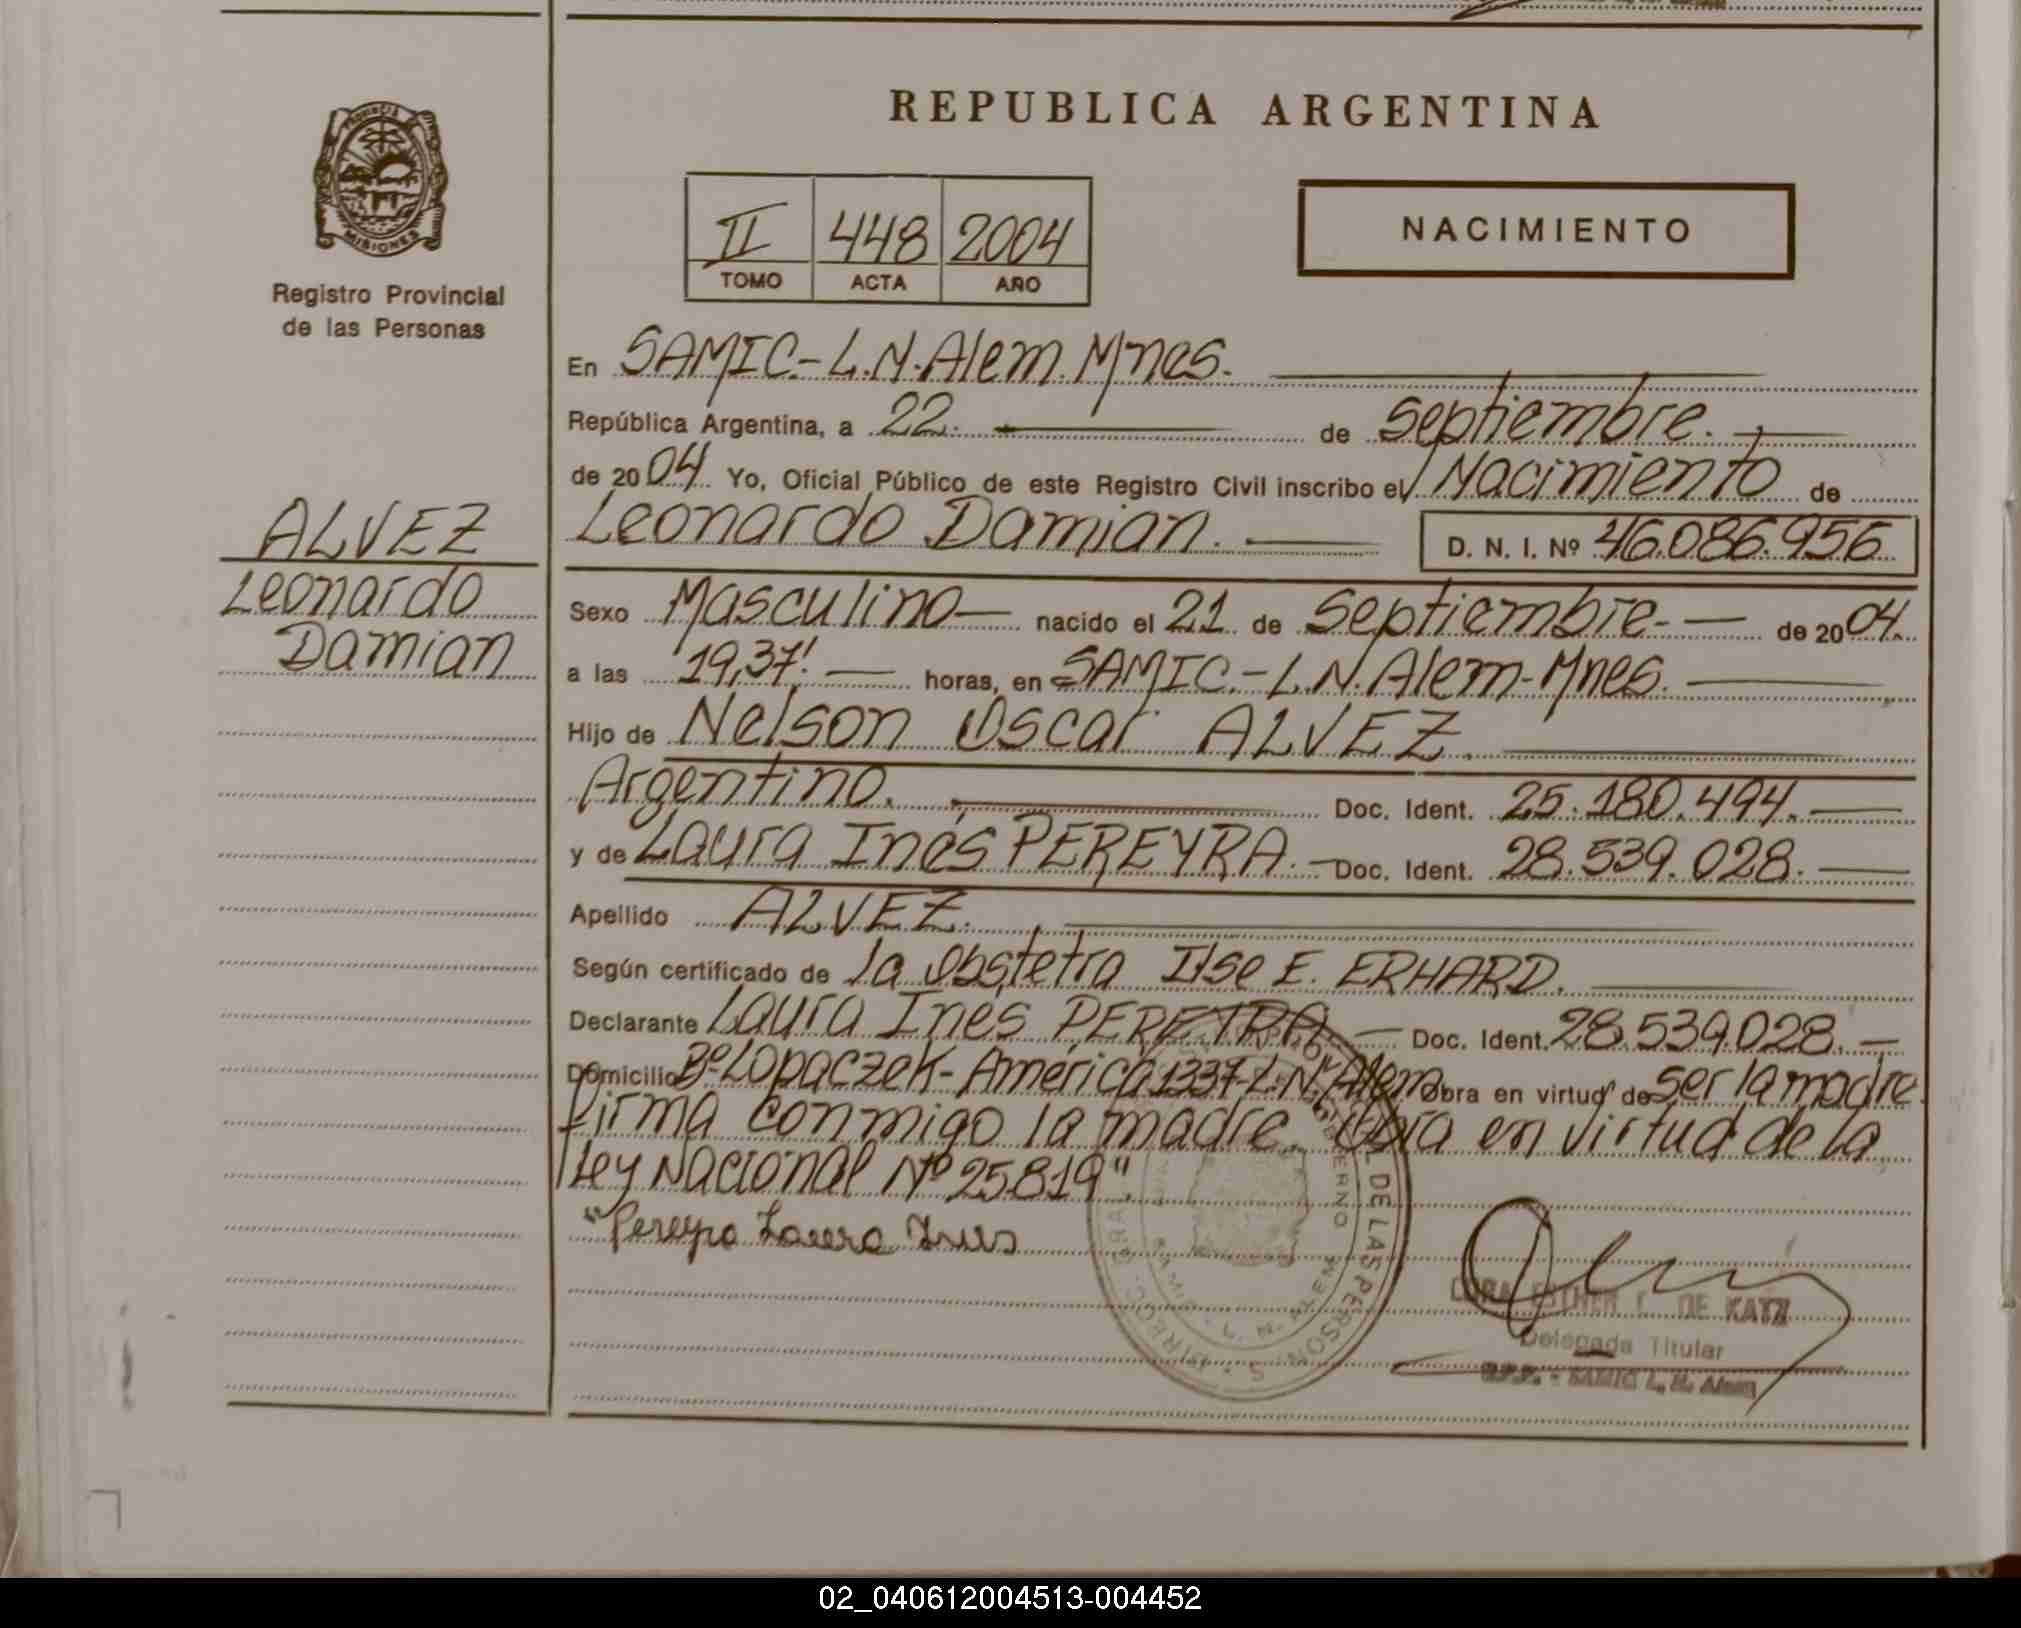 REPUBLICA ARGENTINA
PROVINCIA DE
MISIONES
Registro Provincial
de las Personas
II 448 2004
TOMO ACTA AÑO
NACIMIENTO
En SAMIC.-L.N.Alem.Mnes.
República Argentina, a 22. de septiembre.
de 2004 Yo, Oficial Público de este Registro Civil inscribo el Nacimiento de
ALVEZ
Leonardo
Damian
Leonardo Damian. D. N. I. Nº 46.086.956
Sexo Masculino nacido el 21 de septiembre. de 2004.
a las 19,37! horas, en SAMIC.-L.N.Alem-Mnes.
Hijo de Nelson Oscar ALVEZ.
Argentino. Doc. Ident. 25.180.494.
y de Laura Inés PEREYRA. Doc. Ident. 28.539.028.
Apellido ALVEZ.
Según certificado de la obstetra Ilse E. ERHARD.
Declarante Laura Inés PEREYRA Doc. Ident. 28.539.028.
Domicilio Bº Lopaczek-América 1337-L.N. Alem Obra en virtud de ser la madre.
firma conmigo la madre. Obra en virtud de la
Ley Nacional Nº 25819".
"Pereyra Laura Ines
DE LAS PERSONAS
L. N. ALEM
ESTHER DE KATZ
Delegada Titular
SAMIC L. N. Alem
02_040612004513-004452